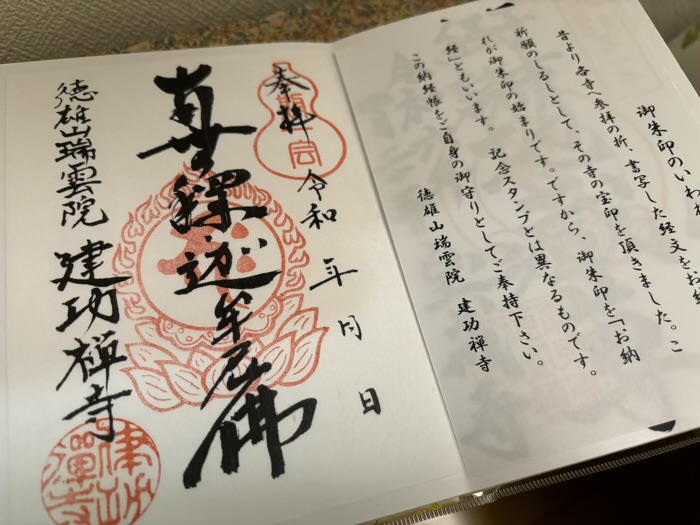 御朱印のいわ
昔より各寺へ参拝の折、書写した経文をお納
祈願のしるしとして、その寺の宝印を頂きました。こ
れが御朱印の始まりです。ですから、御朱印を「お納
経」ともいいます。 記念スタンプとは異なるものです。
この納経帳をご自身の御守りとしてご奉持下さい。
徳雄山瑞雲院 建功禅寺
奉拝 令和 年 月 日
南無釋迦牟尼佛
徳雄山瑞雲院 建功禅寺
建功禪寺